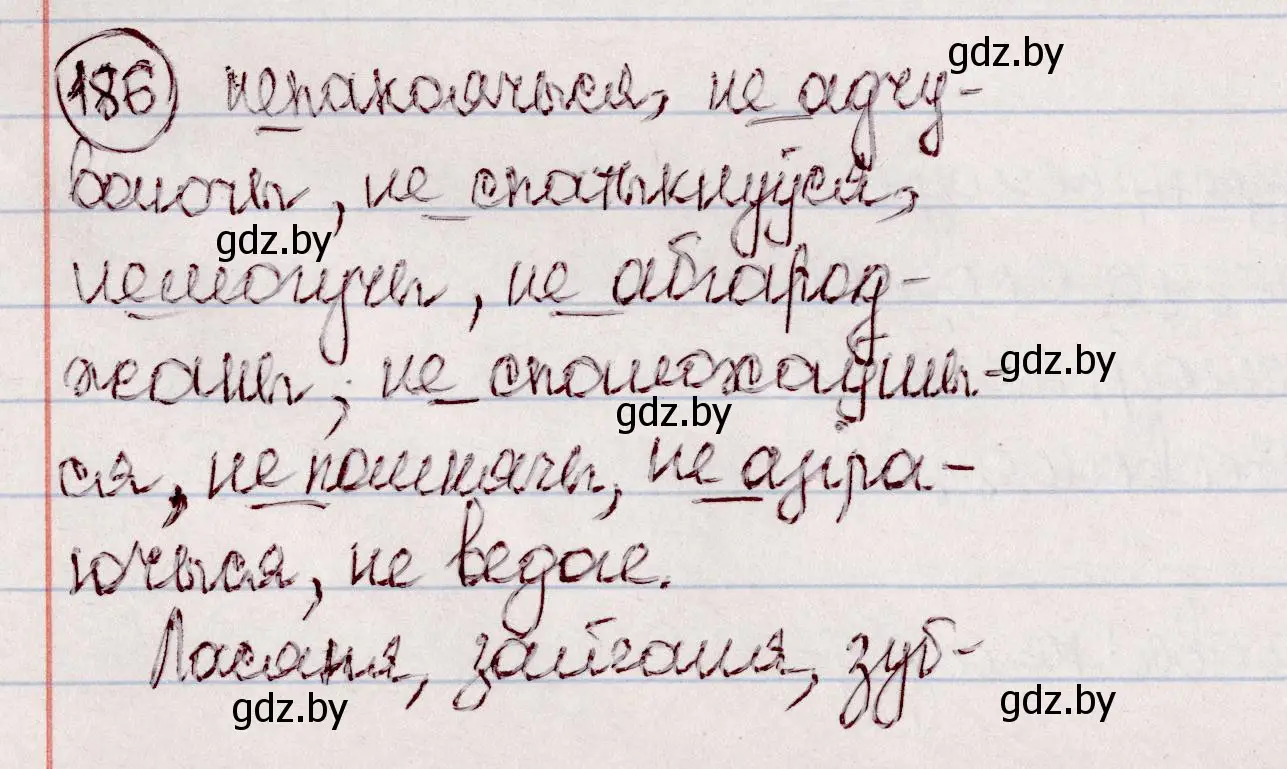 186 непакоячыся, не адчу-
ваючы, не спатыкнуўся,
немогучы, не абгарод-
жаны, не спаможаўшы-
ся, не помнячы, не азіра-
ючыся, не ведае.
Ласаня, зайчаня, зуб-
gdz.by
gdz.by
gdz.by
gdz.by
gdz.by
gdz.by